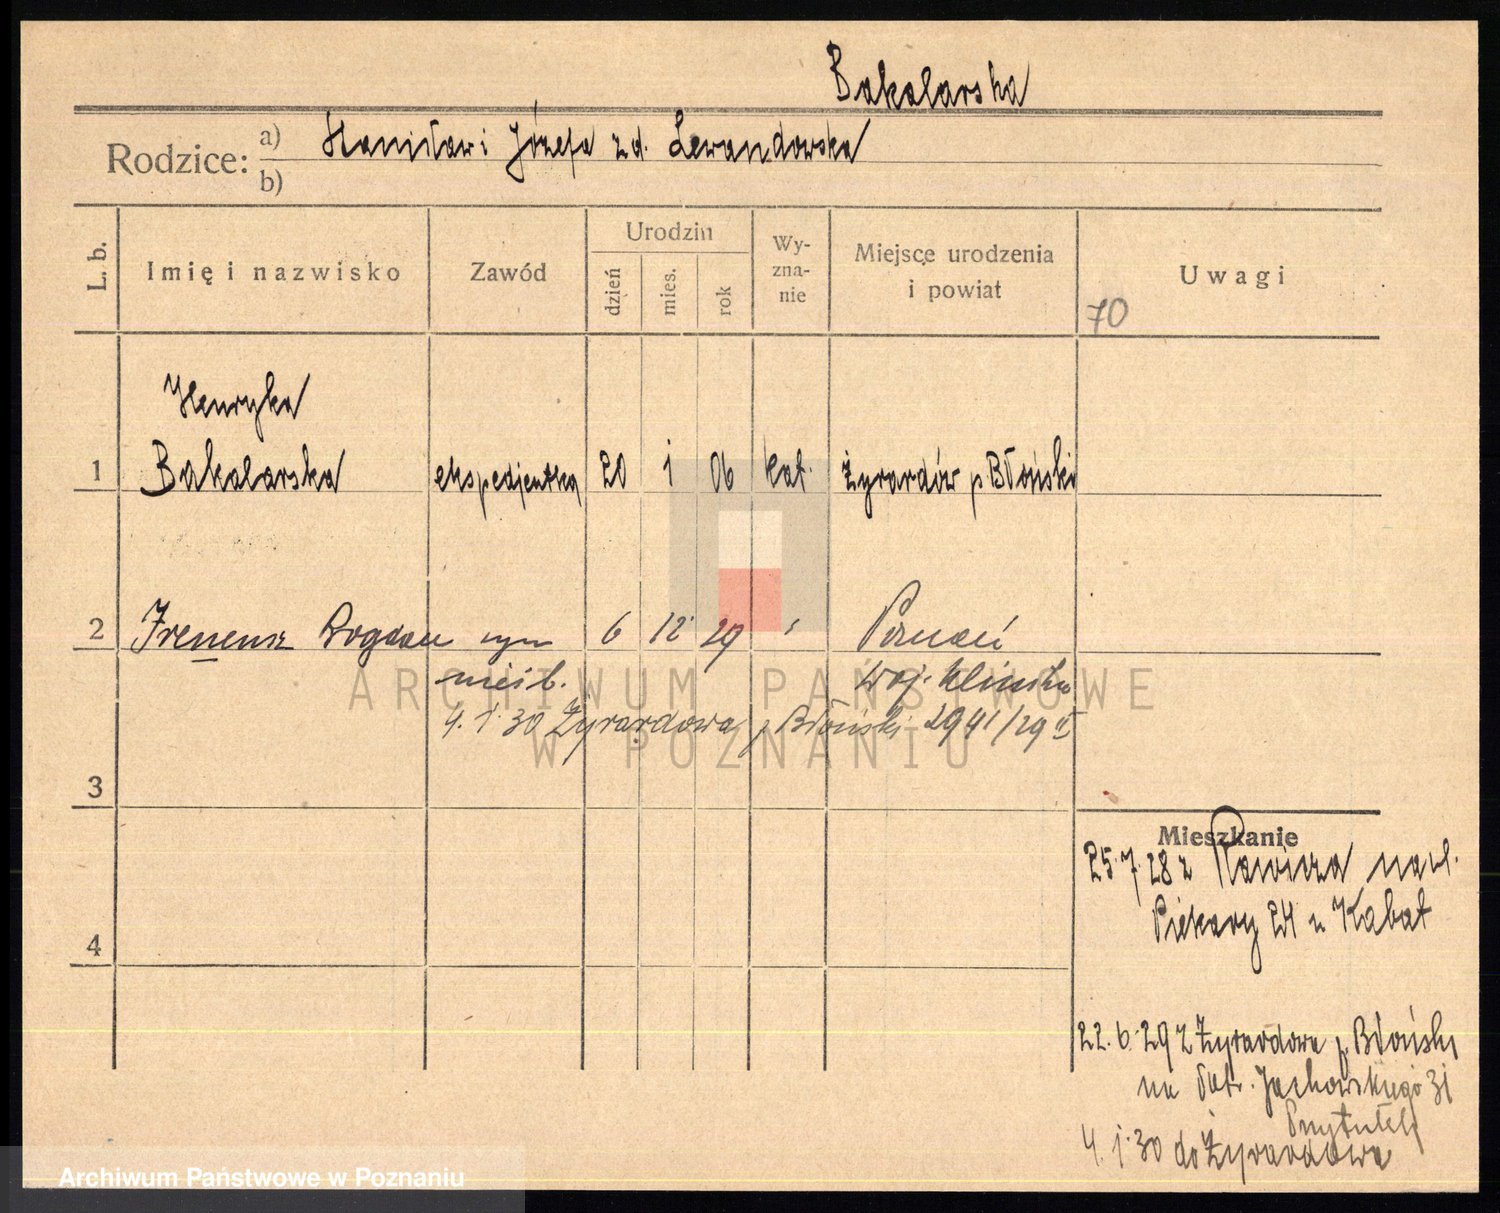 Bakalarska
Rodzice: a) Stanisław i Józefa z d. Lewandowska
b)
L. b.
Imię i nazwisko
Zawód
Urodzin
dzień
mies.
rok
Wy-
zna-
nie
Miejsce urodzenia
i powiat
Uwagi
70
Henryka
1 Bakalarska ekspedjentka 20 1 06 kat. Żyrardów p Błoński
2 Ireneusz Bogdan syn 6 12 29 Poznań
nieśl. Woj. Klinika
4. 1. 30 Żyrardowa p Błoński 2941/29
3
4
Mieszkanie
25.7.28 z Rawicza na ul.
Piekary 24 u Kabat
22.6.29 z Żyrardowa p. Błoński
na Patr. Jackowskiego 31
Przytułek
4.1.30 do Żyrardowa
ARCHIWUM PAŃSTWOWE
W POZNANIU
Archiwum Państwowe w Poznaniu